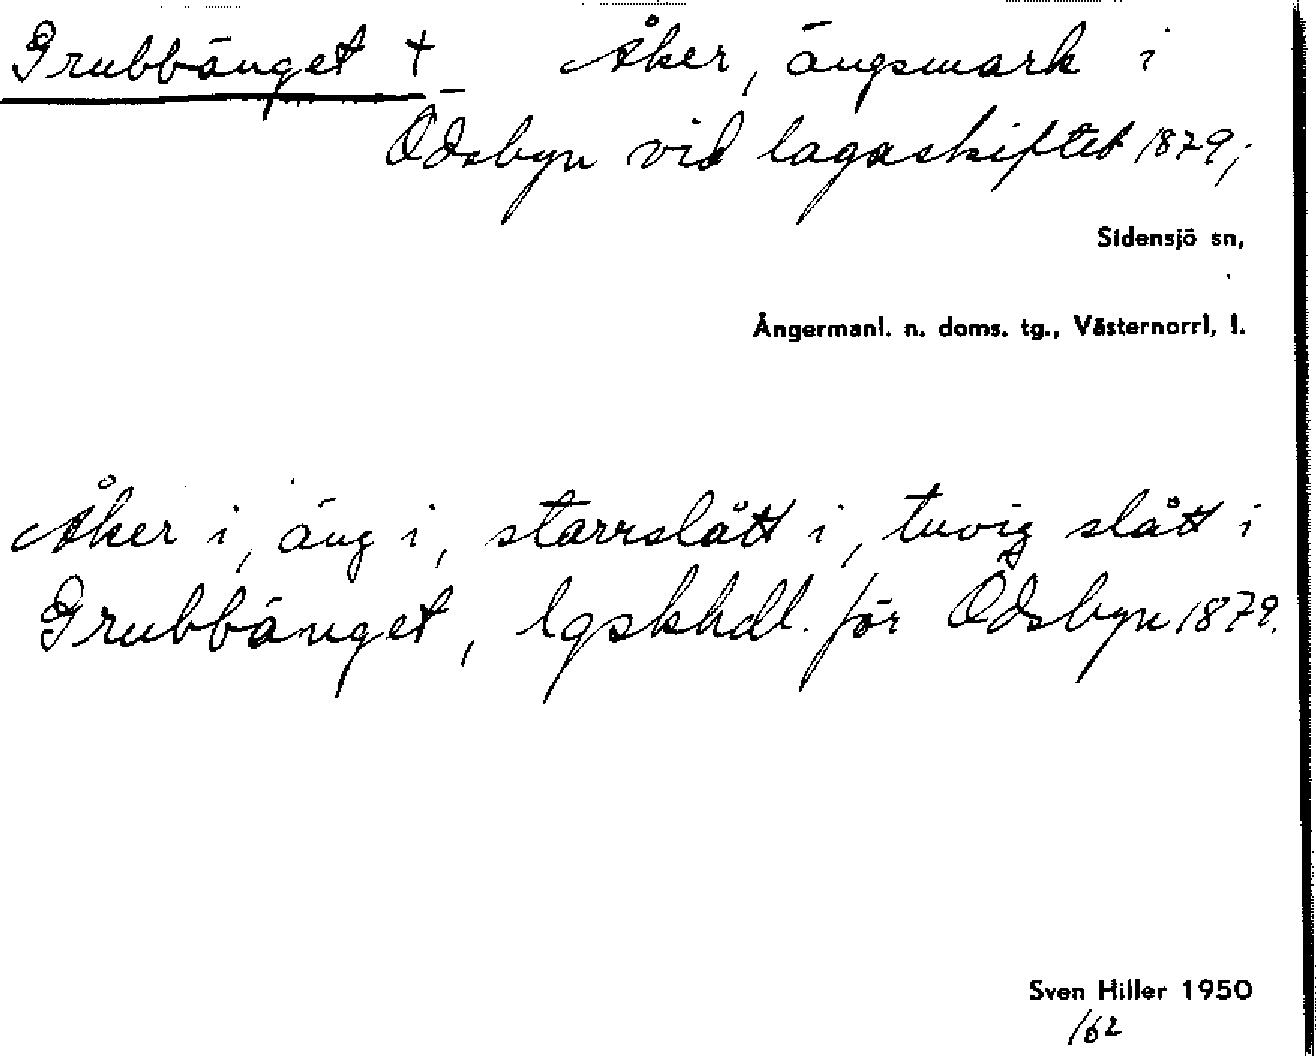 Grubbänget + Åker, ängsmark i
Ödsbyn vid lagaskiftet 1879;
Sidensjö sn,
Ångermanl. n. doms. tg., Västernorrl, l.
Åker i, äng i, starrslått i, tuvig slått i
Grubbänget, lgskhdl. för Ödsbyn 1879.
Sven Hiller 1950
/62